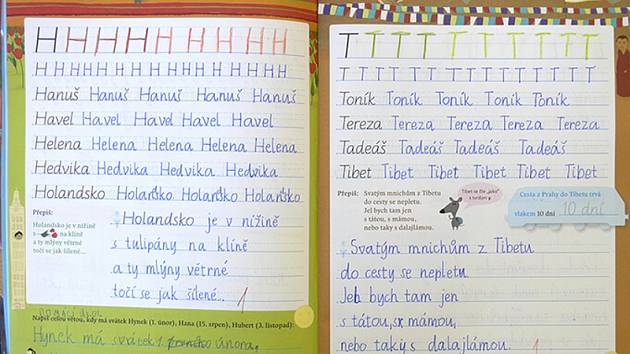 H H H H H H H H H H
H H H H H H H H H H H H H H
Hanuš Hanuš Hanuš Hanuš Hanuš
Havel Havel Havel Havel Havel
Helena Helena Helena Helena Helena
Hedvika Hedvika Hedvika Hedvika
Holandsko Holansko Holansko Holansko
Přepiš:
Holandsko je v nížině
s na klíně
a ty mlýny větrné
točí se jak šílené...
Holandsko je v nížině
s tulipány na klíně
a ty mlýny větrné
točí se jak šílené... 1
DOMACÍ ÚKOL
Napiš celou větou, kdy má svátek Hynek (1. únor), Hana (15. srpen), Hubert (3. listopad):
Hynek má svátek 1 února,
T T T T T T T T T T
T T T T T T T T T T T T T T
Toník Toník Toník Toník Toník
Tereza Tereza Tereza Tereza Tereza
Tadeáš Tadeáš Tadeáš Tadeáš
Tibet Tibet Tibet Tibet Tibet Tibet
Přepiš:
Svatým mnichům z Tibetu
do cesty se nepletu.
Jel bych tam jen
s tátou, s mámou,
nebo taky s dalajlámou.
Tibet se čte
s tvrdým
Cesta z Prahy do Tibetu trvá
vlakem 10 dní 10 dní
Svatým mnichům z Tibetu
do cesty se nepletu
Jeb bych tam jen
s tátou, s mámou,
nebo taky s dalajlámou. 1